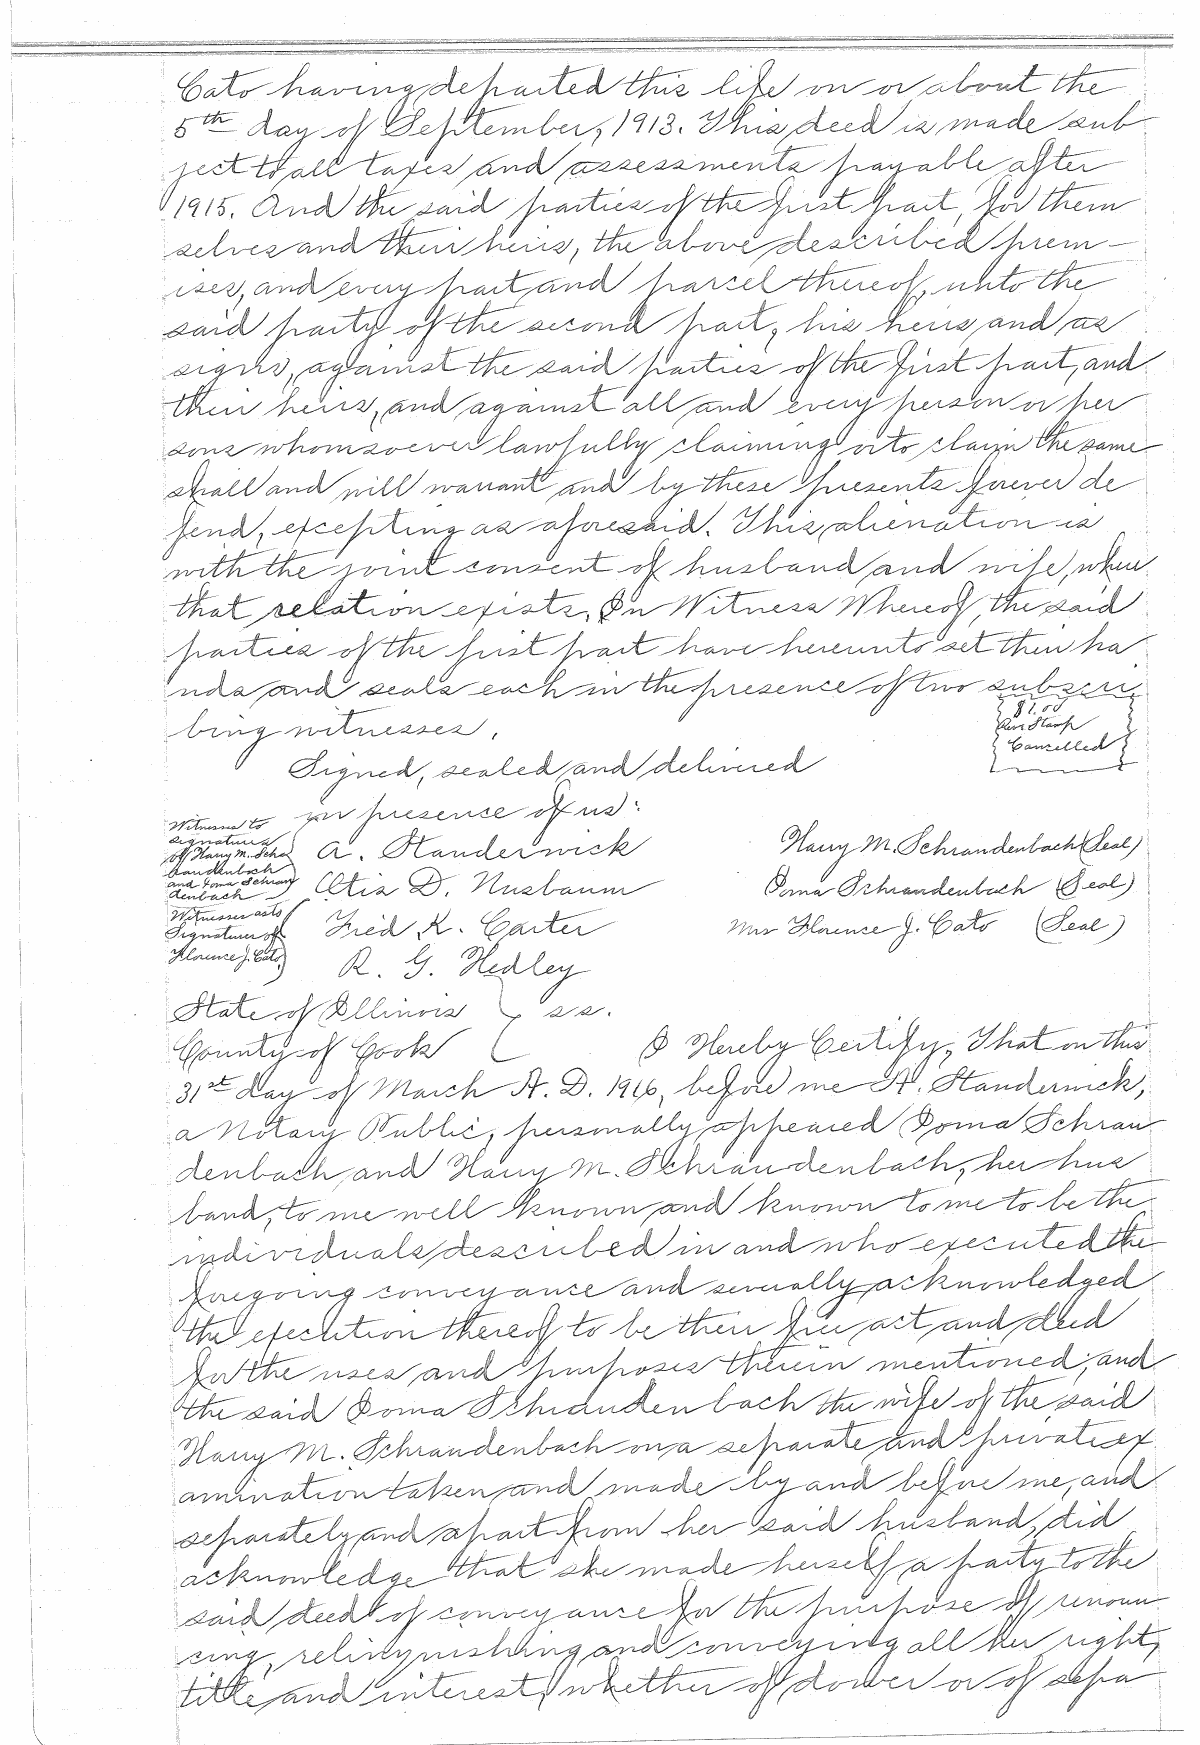 Cato having departed this life on or about the
5th day of September, 1913. This deed is made sub
ject to all taxes and assessments payable after
1915. And the said parties of the first part, for them
selves and their heirs, the above described prem-
ises, and every part and parcel thereof, unto the
said party of the second part, his heirs and as
signs, against the said parties of the first part, and
their heirs, and against all and every person or per
sons whomsoever lawfully claiming or to claim the same
shall and will warrant and by these presents forever de
fend, excepting as aforesaid. This alienation is
with the joint consent of husband and wife, where
that relation exists. In Witness Whereof, the said
parties of the first part have hereunto set their ha
nds and seals each in the presence of two subscri
bing witnesses.
$1.00
Rev Stamp
Cancelled
Signed, sealed and delivered
in presence of us:
Witnesses to
signatures
of Harry M. Sch
raudenbach
and Ioma Schrau
denbach
A. Standerwick
Harry M. Schraudenbach (Seal)
Otis D. Nusbaum
Ioma Schraudenbach (Seal)
Witnesses as to
Signature of
Florence J. Cato
Fred K. Carter
Mrs Florence J. Cato (Seal)
R. G. Hedley
State of Illinois } ss.
County of Cook
I Hereby Certify, That on this
31st day of March A. D. 1916, before me A. Standerwick,
a Notary Public, personally appeared Ioma Schrau
denbach and Harry M. Schraudenbach, her hus
band, to me well known and known to me to be the
individuals described in and who executed the
foregoing conveyance and severally acknowledged
the execution thereof to be their free act and deed
for the uses and purposes therein mentioned; and
the said Ioma Schraudenbach the wife of the said
Harry M. Schraudenbach on a separate and private ex
amination taken and made by and before me, and
separately and apart from her said husband, did
acknowledge that she made herself a party to the
said deed of conveyance for the purpose of renoun
cing, relinquishing and conveying all her right,
title and interest, whether of dower or of sepa